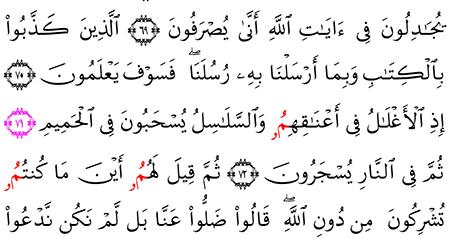 يُجَٰدِلُونَ فِى ءَايَٰتِ ٱللَّهِ أَنَّىٰ يُصْرَفُونَ ﴿٦٩﴾ ٱلَّذِينَ كَذَّبُوا۟
بِٱلْكِتَٰبِ وَبِمَا أَرْسَلْنَا بِهِۦ رُسُلَنَا ۖ فَسَوْفَ يَعْلَمُونَ ﴿٧٠﴾
إِذِ ٱلْأَغْلَٰلُ فِى أَعْنَٰقِهِمُۥ وَٱلسَّلَٰسِلُ يُسْحَبُونَ فِى ٱلْحَمِيمِ ﴿٧١﴾
ثُمَّ فِى ٱلنَّارِ يُسْجَرُونَ ﴿٧٢﴾ ثُمَّ قِيلَ لَهُمُۥ أَيْنَ مَا كُنتُمُۥ
تُشْرِكُونَ مِن دُونِ ٱللَّهِ ۖ قَالُوا۟ ضَلُّوا۟ عَنَّا بَل لَّمْ نَكُن نَّدْعُوا۟